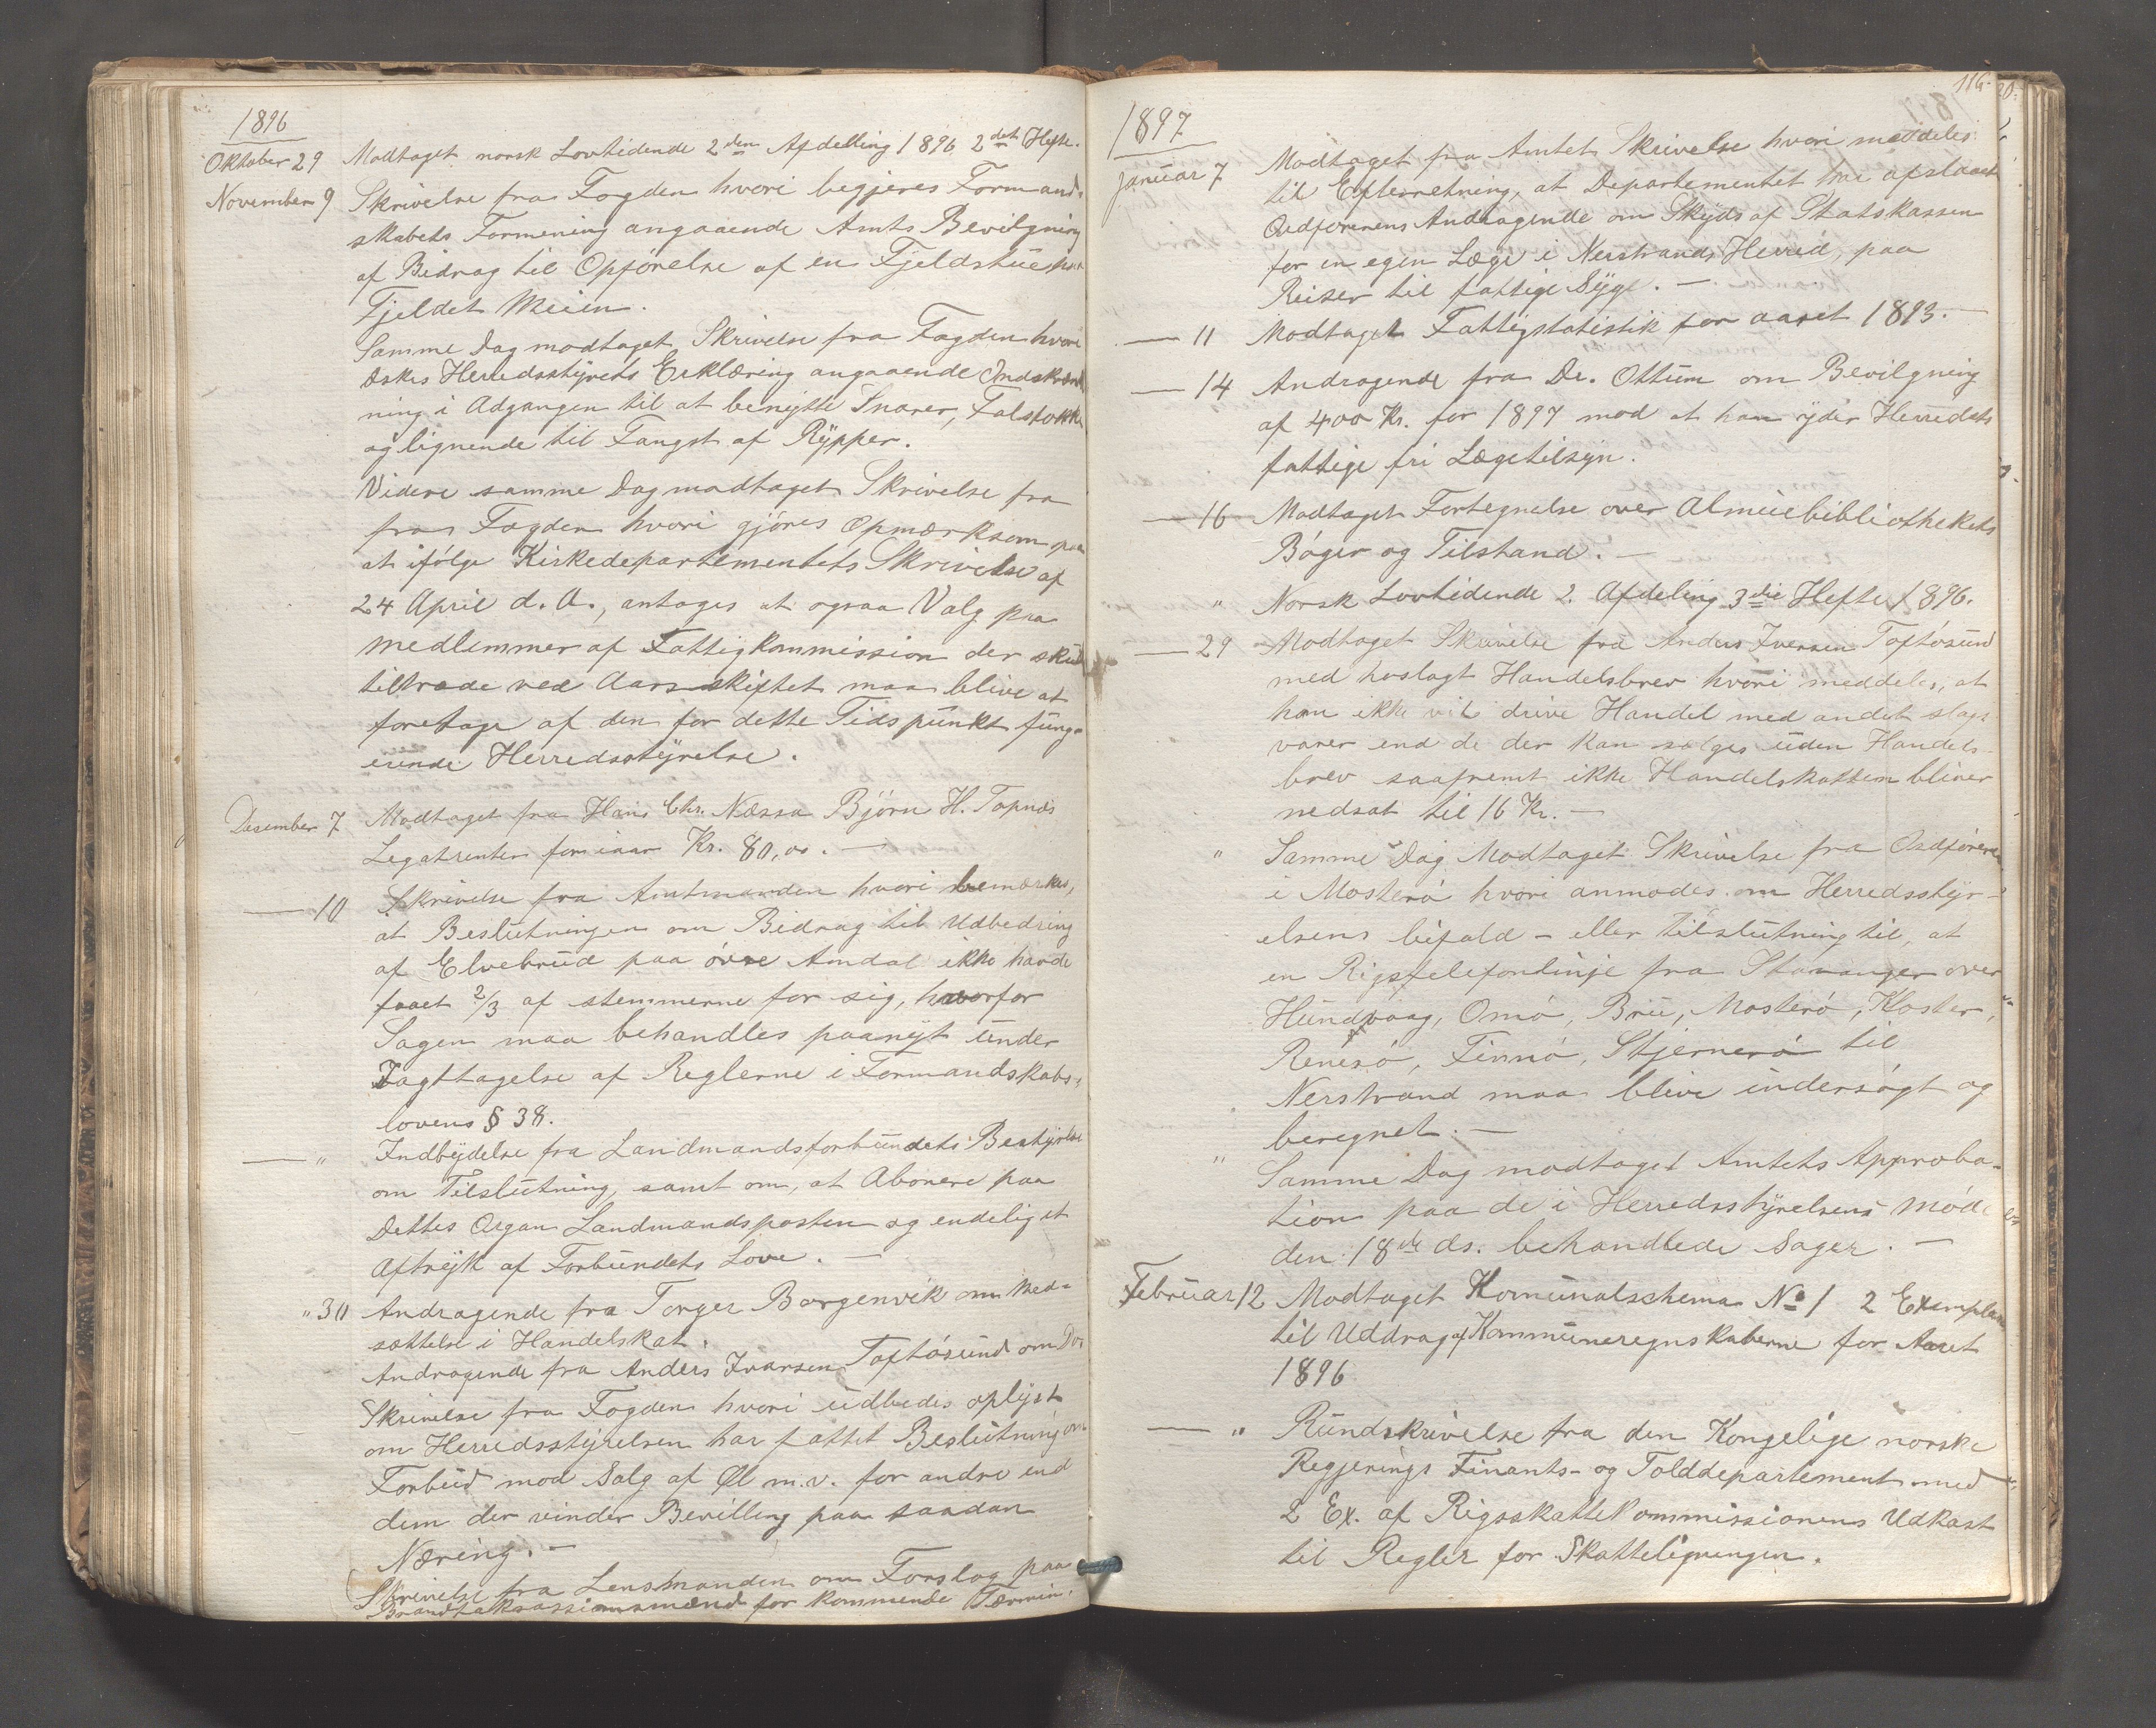 1896
Oktober 29 Modtaget norsk Lovtidende 2den Afdelling 1896 2det Hefte.
November 9 Skrivelse fra Fogden hvori begjeres Formand-
skabets Formening angaaende Amts Bevilgning
af Bidrag til Opförelse af en Fjeldstue paa
Fjeldet Meien.
Samme Dag modtaget Skrivelse fra Fogden hvori
æskes Herredsstyrets Erklæring angaaende Indskrænk
ning i Adgangen til at benytte Snarer, Falstokke
og lignende til Fangst af Rypper.
Videre samme Dag modtaget Skrivelse fra
fra Fogden hvori gjöres Opmærksom paa
at ifölge Kirkedepartementets Skrivelse af
24 April d. A., antages at ogsaa Valg paa
medlemmer af Fattigkommission der skul
tiltræde ved Aarsskiftet maa blive at
foretage af den för dette Tidspunkt fung-
erende Herredsstyrelse.
Desember 7 Modtaget fra Hans Chr. Næssa Björn H. Topnes
Legatrenter for iaar Kr. 80,00. —
— 10 Skrivelse fra Amtmanden hvori bemærkes,
at Beslutningen om Bidrag til Udbedring
af Elvebrud paa övre Amdal ikke havde
faaet 2/3 af stemmerne for sig, hvorfor
Sagen maa behandles paanyt under
Iagttagelse af Reglerne i Formandskabs-
lovens § 38.
— " Indbydelse fra Landmandsforbundets Bestyrelse
om Tilslutning, samt om, at Abonere paa
Dettes Organ Landmandsposten og endelig et
Aftryk af Forbundets Love. —
" 30 Andragende fra Torger Borgenvik om Ned-
sættelse i Handelskat.
Andragende fra Anders Ivarsen Toftösund om Do.
Skrivelse fra Fogden hvori udbedes oplyst
om Herredsstyrelsen har fattet Beslutning om
Forbud mod Salg af Øl m.v. for andre end
dem der vinder Bevilling paa saadan
Næring. —
Skrivelse fra Lensmanden om Forslag paa
Brandtaksasionsmænd for kommende Termin.
116.
1897
Januar 7 Modtaget fra Amtet Skrivelse hvori meddeles
til Efterretning, at Departementet har afslaaet
Ordförerens Andragende om Skyds af Statskassen
for en egen Læge i Nerstrands Herred, paa
Reiser til fattige Syge. —
— 11 Modtaget Fattigstatistik for aaret 1893. —
— 14 Andragende fra Dr. Ottum om Bevilgning
af 400 Kr. for 1897 mod at han yder Herredets
fattige fri Lægetilsyn.
— 16 Modtaget Fortegnelse over Almuebibliothekets
Böger og Tilstand. —
" Norsk Lovtidende 2. Afdeling 3die Hefte 1896.
— 29 Modtaget Skrivelse fra Anders Iversen Toftösund
med hoslagt Handelsbrev hvori meddeles, at
han ikke vil drive Handel med andet slags
varer end de der kan sælges uden Handels-
brev saafremt ikke Handelskatten bliver
nedsat til 16 Kr. —
" Samme Dag Modtaget Skrivelse fra Ordföreren
i Mosterö hvori anmodes om Herredsstyr-
elsens bifald - eller tilslutning til, at
en Rigstelefonlinje fra Stavanger over
Hundvaag, Omö, Bru, Mosterö, Kloster,
Renesö, Finnö, Stjernerö til
Nerstrand maa blive undersögt og
beregnet. —
" Samme Dag modtaget Amtets Approba-
tion paa de i Herredsstyrelsens möde
den 18de ds. behandlede Sager. —
Februar 12 Modtaget Komunalschema No 1 2 Exemplar
til Uddrag af Kommuneregnskaberne for Aaret
1896
— " Rundskrivelse fra den Kongelige norske
Regjerings Finants- og Tolddepartement med
2 Ex. af RigsskatteKommissionens Udkast
til Regler for Skatteligningen.